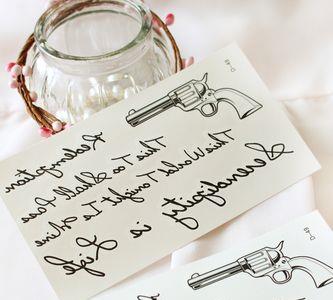 D-48
Redemption
This Too Shall Pass
This World Tonight Is Mine
Serendipity is Life
D-48